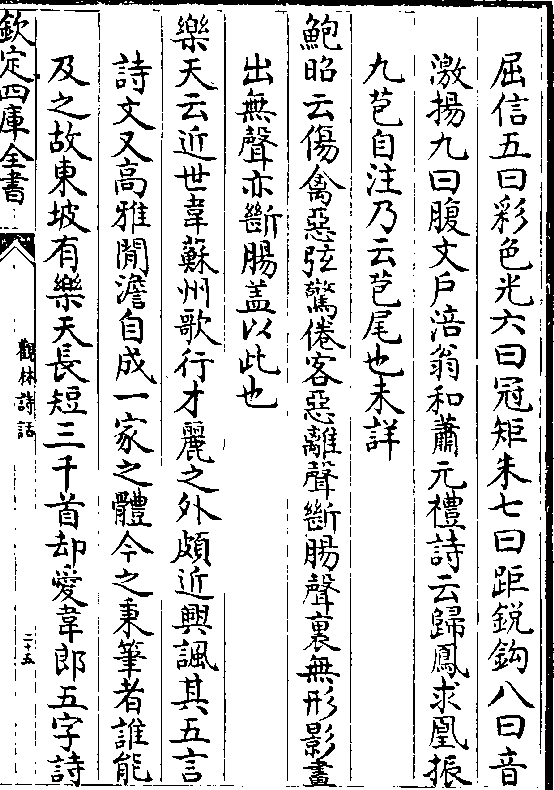 屈信五曰彩色光六曰冠矩朱七曰距銳鈎八曰音
激揚九曰腹文戶涪翁和蕭元禮詩云歸鳳求凰振
九苞自注乃云苞尾也未詳
鮑昭云傷禽惡弦驚倦客惡離聲斷腸聲裏無形影畫
出無聲亦斷腸蓋以此也
樂天云近世韋蘇州歌行才麗之外頗近興諷其五言
詩文又高雅閒澹自成一家之體今之秉筆者誰能
及之故東坡有樂天長短三千首却愛韋郎五字詩
欽定四庫全書
觀林詩話
二十五